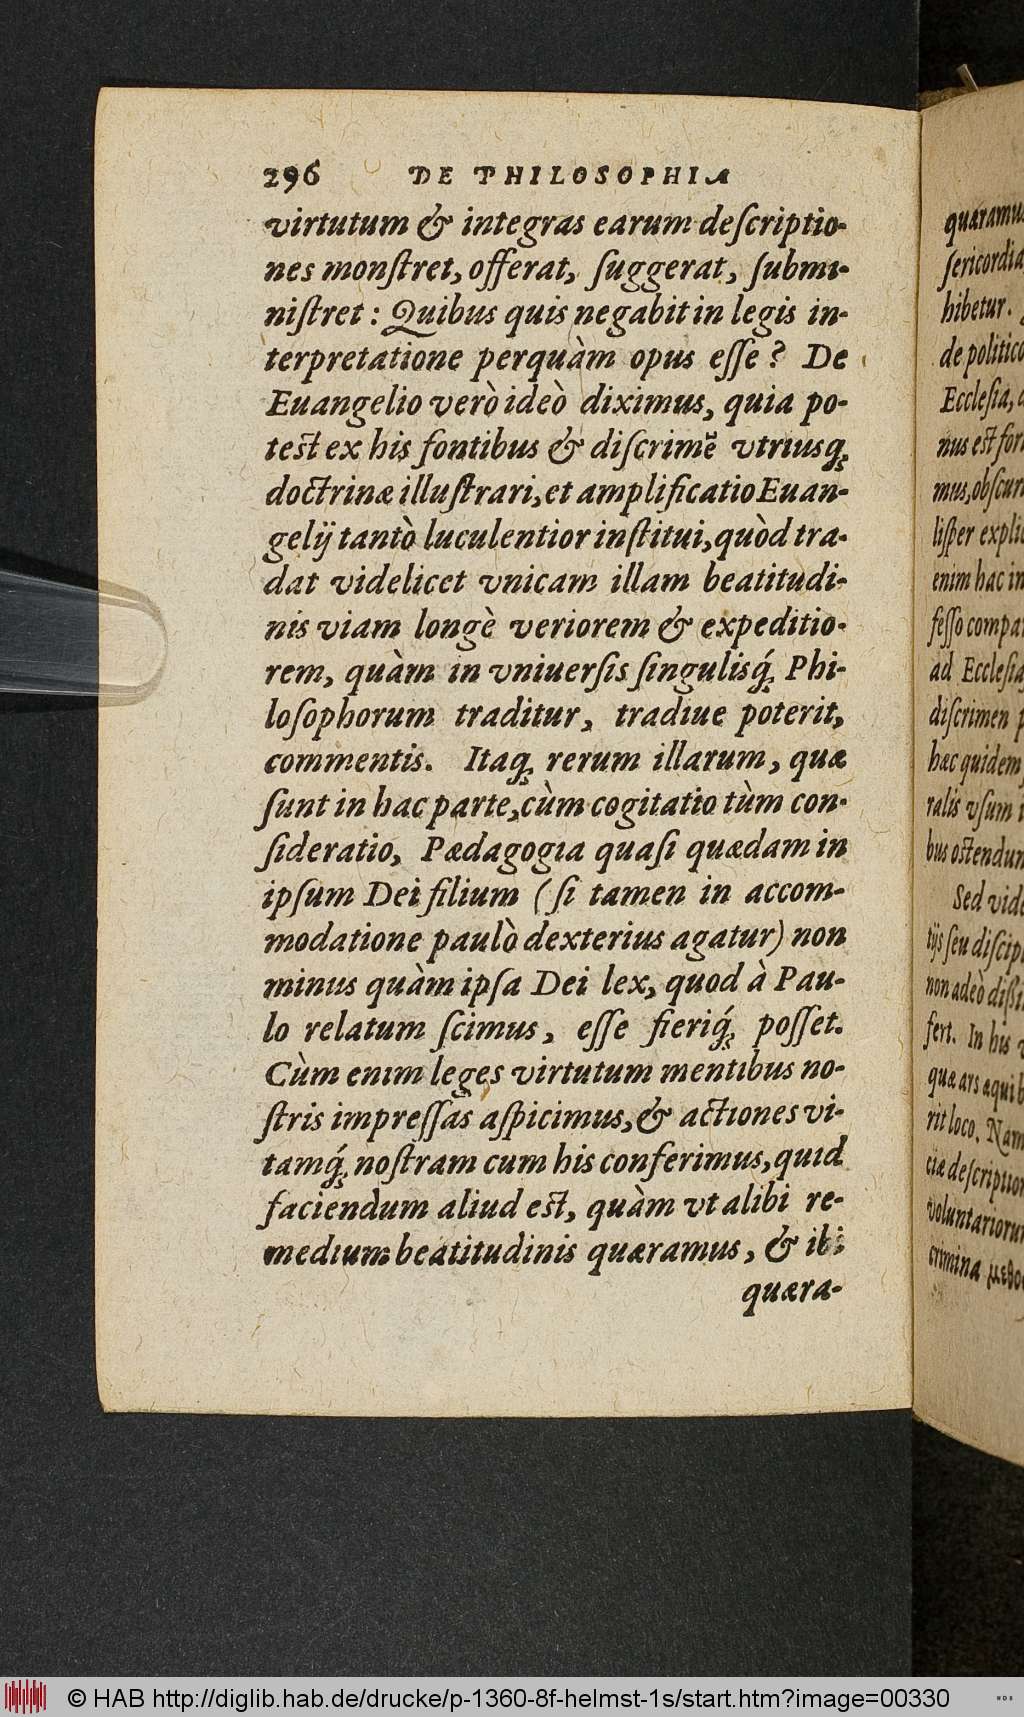 296 DE PHILOSOPHIA
virtutum & integras earum deſcriptio-
nes monſtret, offerat, ſuggerat, ſubmi-
niſtret: Quibus quis negabit in legis in-
terpretatione perquàm opus eſſe? De
Euangelio verò ideò diximus, quia po-
teſt ex his fontibus & diſcrimē vtriusq́;
doctrinæ illuſtrari, et amplificatio Euan-
gelij tantò luculentior inſtitui, quòd tra-
dat videlicet vnicam illam beatitudi-
nis viam longè veriorem & expeditio-
rem, quàm in vniuerſis ſingulisq́; Phi-
loſophorum traditur, tradiue poterit,
commentis. Itaq; rerum illarum, quæ
ſunt in hac parte, cùm cogitatio tùm con-
ſideratio, Pædagogia quaſi quædam in
ipſum Dei filium (ſi tamen in accom-
modatione paulò dexterius agatur) non
minus quàm ipſa Dei lex, quod à Pau-
lo relatum ſcimus, eſſe fieriq́; poſſet.
Cùm enim leges virtutum mentibus no-
ſtris impreſſas aſpicimus, & actiones vi-
tamq́; noſtram cum his conferimus, quid
faciendum aliud eſt, quàm vt alibi re-
medium beatitudinis quæramus, & ibi
quæra-
ſericordia
hibetur.
de politico
Eccleſia,
nus eſt
mus, obſcur
liſper
enim hac in
feſſo
ad Eccleſia
diſcrimen
hæc quidem
ralis vſum
bus oſtendun
Sed
tijs ſeu
non adeò
fert. In his
quæ ars
rit loco. Nam
ciæ
voluntariorum
crimina
© HAB http://diglib.hab.de/drucke/p-1360-8f-helmst-1s/start.htm?image=00330